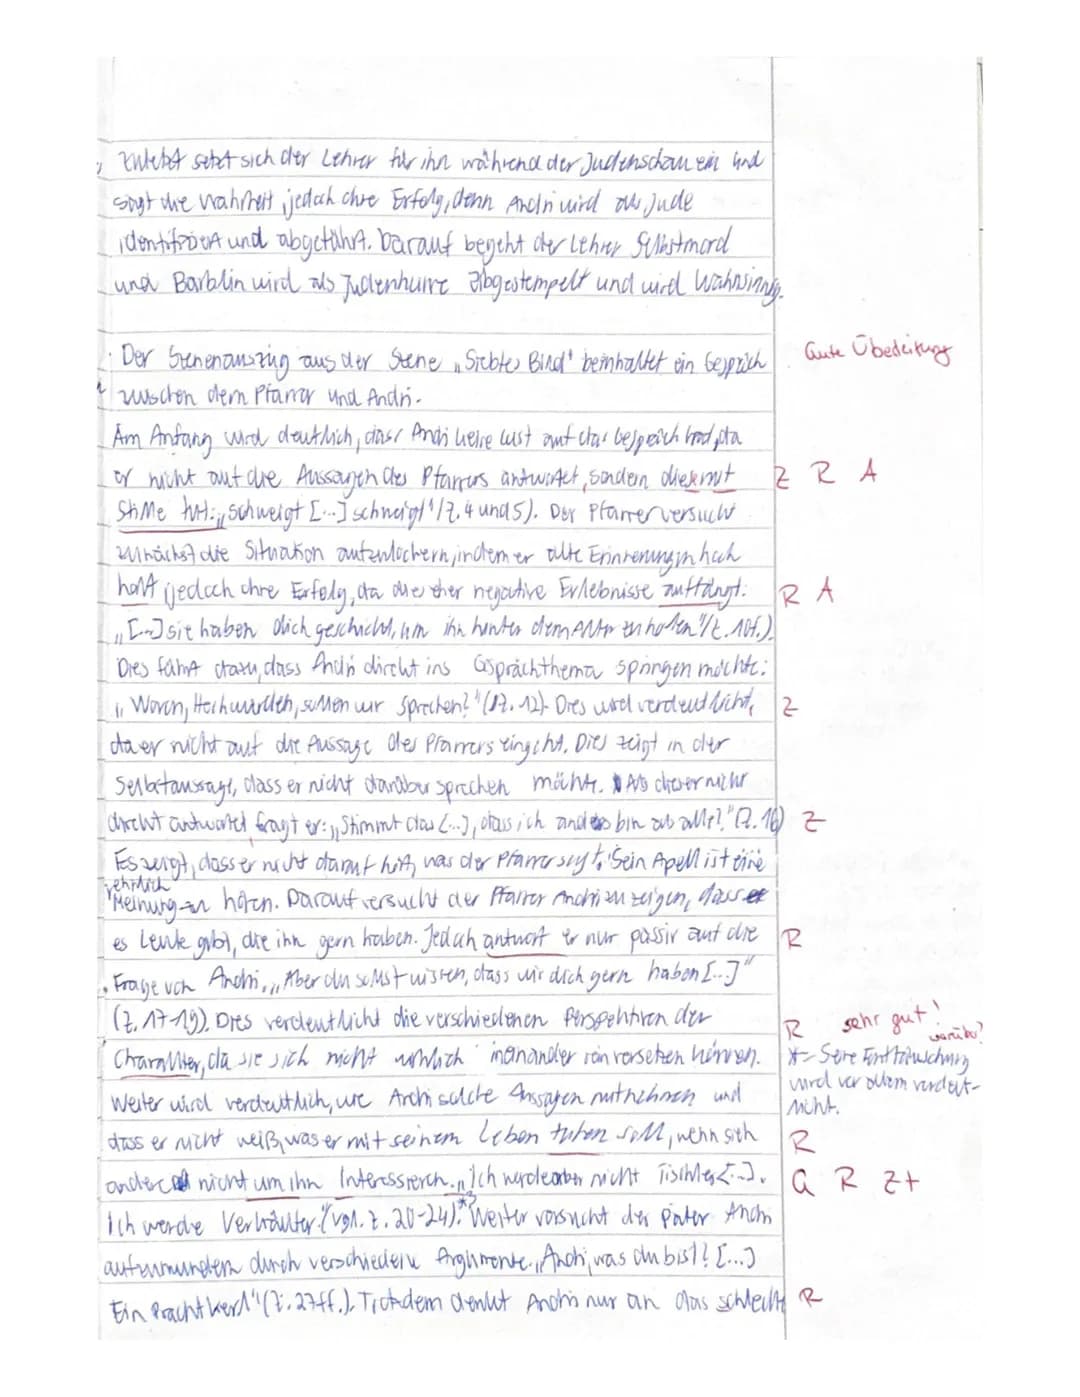 Zuletzt setzt sich der Lehrer für ihn während der Judenschau ein und
sagt die Wahrheit, jedoch ohne Erfolg, denn Andri wird als Jude
identifiziert und abgeführt. Darauf begeht der Lehrer Selbstmord
und Barblin wird als Judenhurre abgestempelt und wird Wahnsinnig.
Der Szenenauszug aus der Szene „Siebtes Bild" beinhaltet ein Gespräch
Gute Überleitung
zwischen dem Pfarrer und Andri.
Am Anfang wird deutlich, dass Andri keine Lust auf das Gespräch hat, da
er nicht auf die Aussagen des Pfarrers antwortet, sondern
Z R A
„schweigt [...] schweigt" (Z. 4 und 5). Der Pfarrer versucht
zunächst die Situation aufzulockern, indem er alte Erinnerungen hoch
holt, jedoch ohne Erfolg, da die eher negative Erlebnisse auffängt:
R A
„[...] sie haben dich geschickt, um ihn hinter dem Altar zu holen" (Z. 10f.).
Dies führt dazu, dass Andri direkt ins Gesprächthema springen möchte:
„Woran, Hochwürden, sollen wir sprechen?" (Z. 12). Dies wird verdeutlicht,
Z
da er nicht auf die Aussage des Pfarrers eingeht. Dies zeigt in der
Selbstaussage, dass er nicht darüber sprechen möchte. Als dieser nicht
direkt antwortet fragt er: „Stimmt das [...], dass ich anders bin als alle?" (Z. 16)
Z
Es zeigt, dass er nicht darauf hört, was der Pfarrer sagt. Sein Apell ist eine
ehrlich
Meinung zu hören. Darauf versucht der Pfarrer Andri zu zeigen, dass
es Leute gibt, die ihn gern haben. Jedoch antwort er nur passiv auf die
R
Frage von Andri, „Aber du sollst wissen, dass wir dich gern haben [...]"
(Z. 17-19). Dies verdeutlicht die verschiedenen Perspektiven der
R sehr gut!
worüber?
Charakter, da sie sich nicht wirklich ineinander rein versetzen können.
*= Seine Enttäuschung
wird vor allem verdeut-
licht.
Weiter wird verdeutlich, wie Andri solche Aussagen mitnehmen und
dass er nicht weiß, was er mit seinem Leben tuhen soll, wenn sich
R
andere nicht um ihn Interessierch. „Ich werde aber nicht Tischler [...].
G R Zt
Ich werde Verkäufer." (vgl. Z. 20-24). Weiter versucht der Pater Andri
aufzumundern durch verschiedene Argumente. „Andri, was du bist! [...]
Ein Prachtkerl" (Z. 27ff.). Trotzdem denkt Andri nur an das schlecht
R